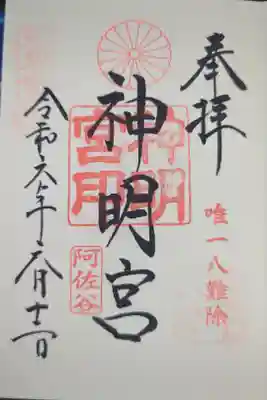 奉拝
唯一八難除
神明宮
神明宮印
阿佐谷
令和六年 月十 日